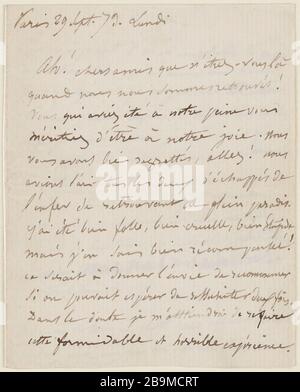 Paris 29 Sept. 73. Lundi
Ah! chers amis que n'étiez-vous là
quand nous nous sommes retrouvés!
Vous qui aviez été à notre peine vous
méritiez d'être à notre joie. Nous
vous avons bien regrettés, allez! nous
avions l'air d'échappés de
l'enfer se retrouvant en plein paradis.
J'ai été bien folle, bien cruelle, bien stupide
mais j'en suis bien récompensée!
ce serait à donner l'envie de recommencer
si on pouvait espérer de ressusciter deux fois.
Dans le doute je m'abstiendrai de refaire
cette formidable et horrible expérience.
alamy
Image ID: 2B9MCRT
www.alamy.com